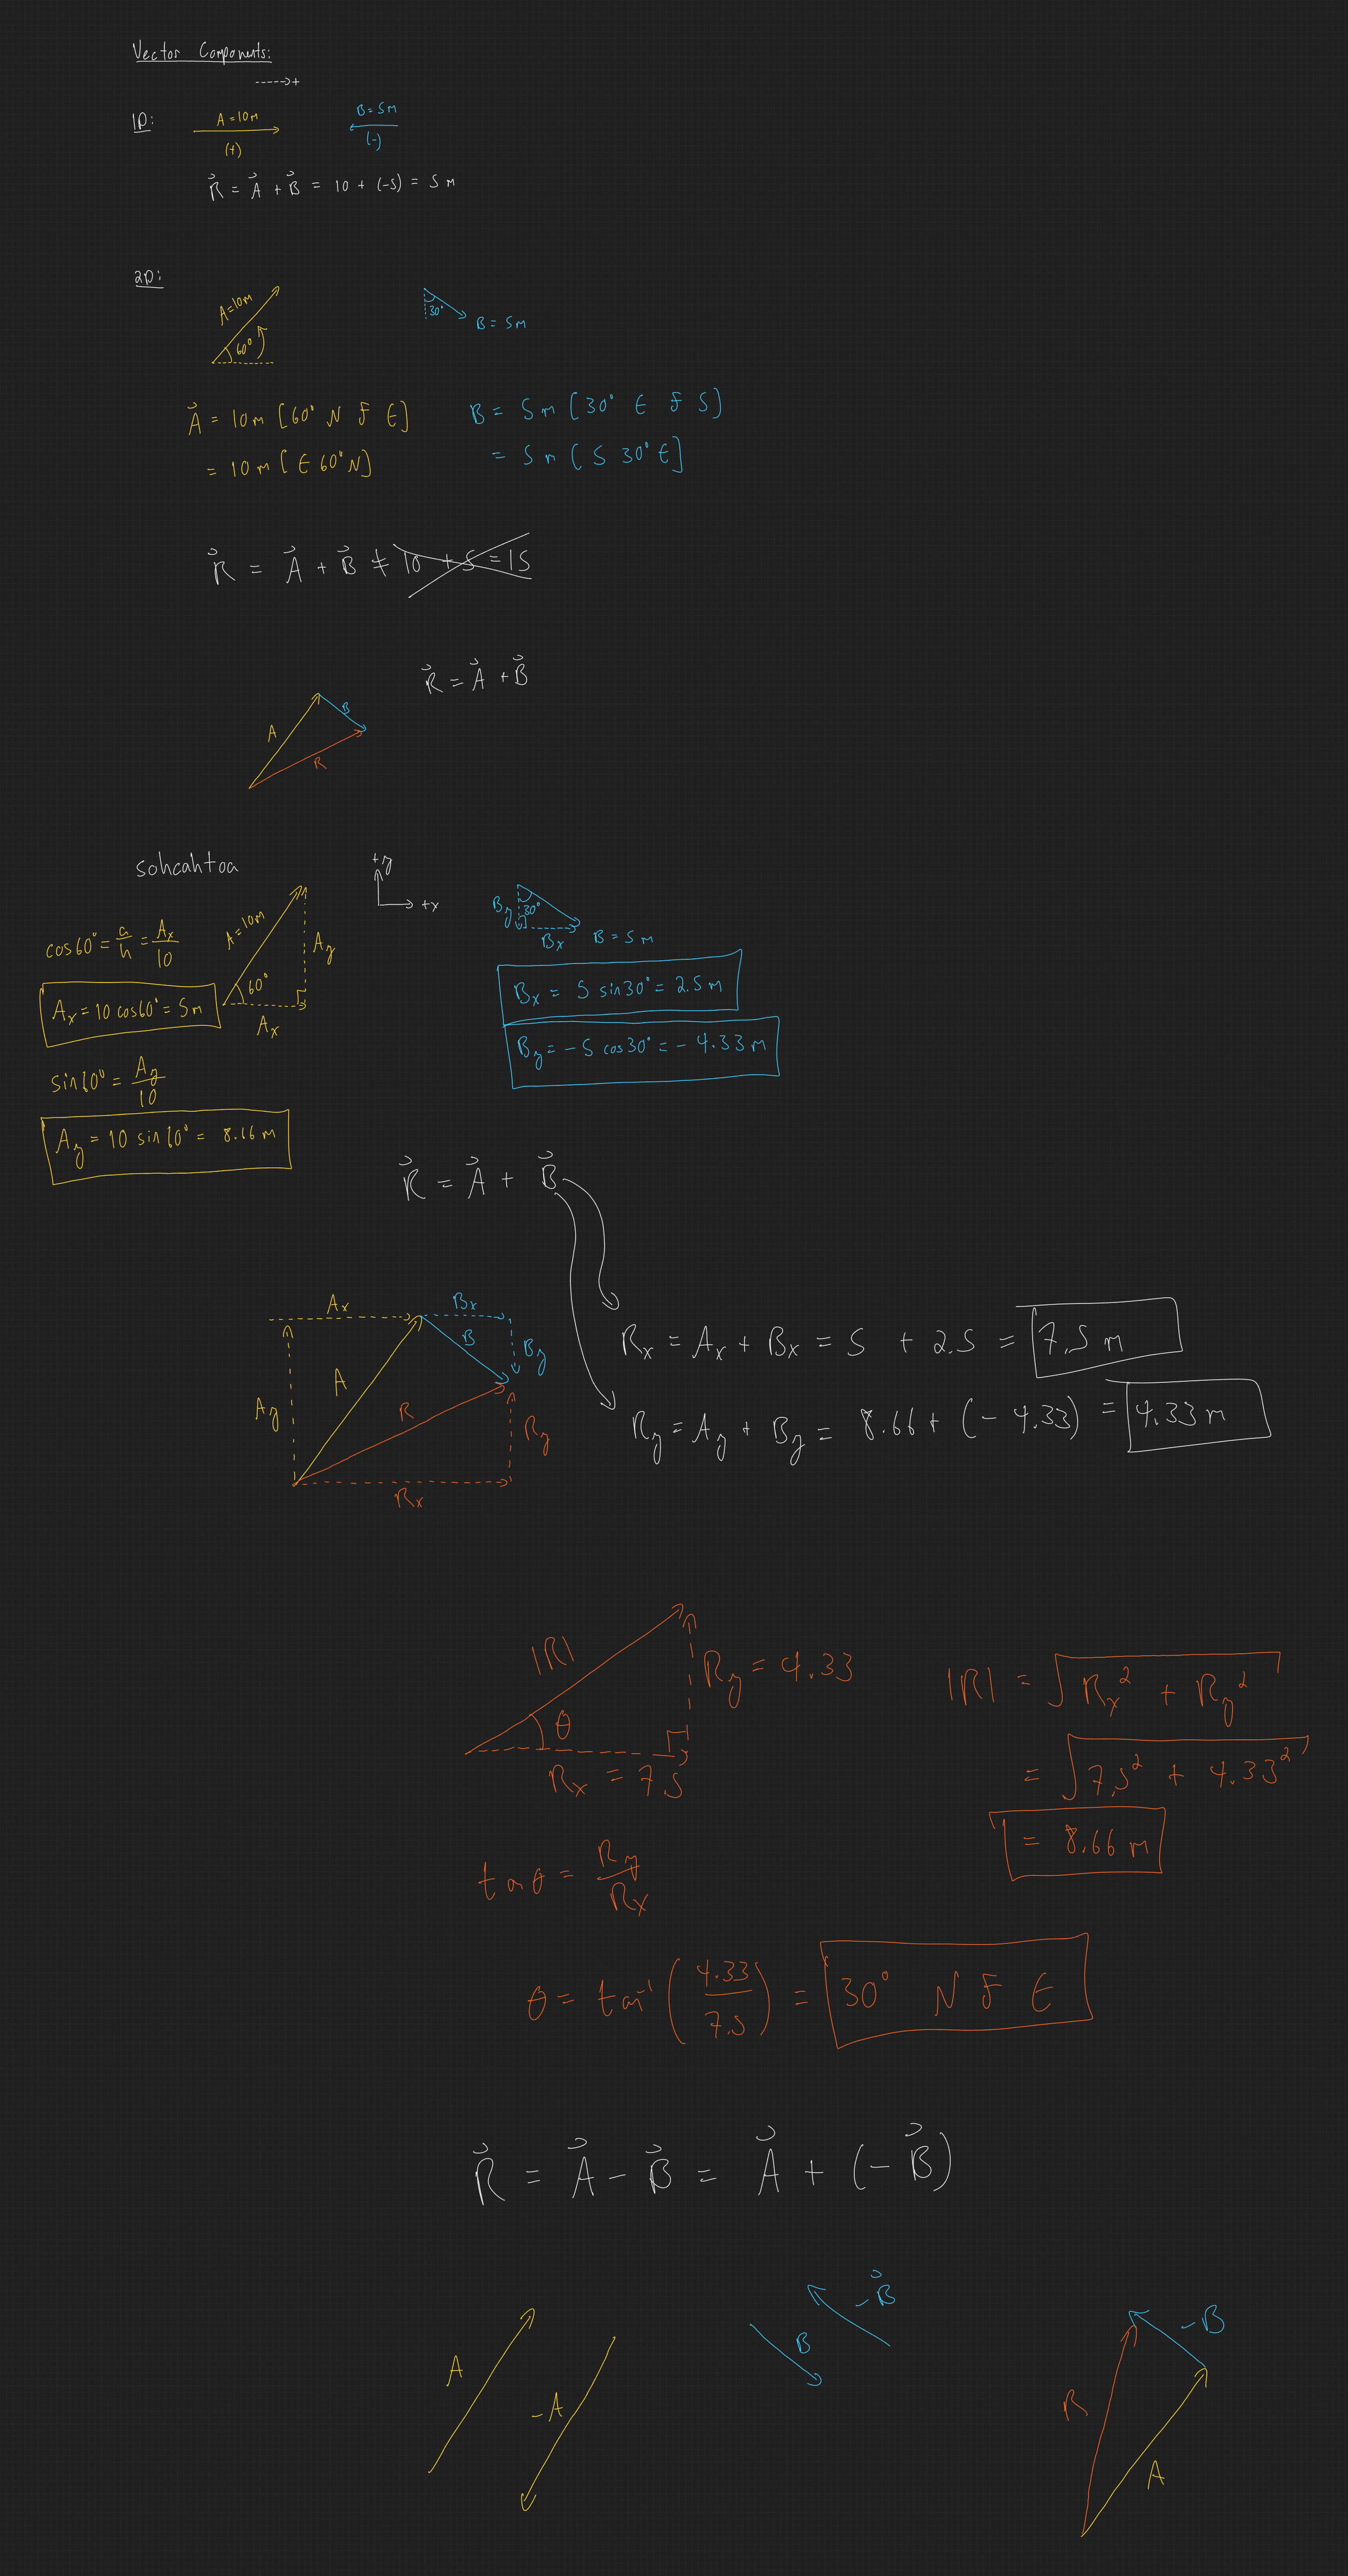 Vector Components:
+
1D:
A = 10 m
B = 5 m
(+)
(-)
R⃗ = A⃗ + B⃗ = 10 + (-5) = 5 m
2D:
A = 10 m
60°
30°
B = 5 m
A⃗ = 10 m [60° N of E]
B = 5 m [30° E of S]
= 10 m [E 60° N]
= 5 m [S 30° E]
R⃗ = A⃗ + B⃗ ≠ 10 + 5 = 15
R⃗ = A⃗ + B⃗
A
B
R
sohcahtoa
+y
+x
A = 10 m
60°
Ay
Ax
cos60° = a/h = Ax/10
Ax = 10 cos60° = 5 m
sin60° = Ay/10
Ay = 10 sin60° = 8.66 m
By
30°
Bx
B = 5 m
Bx = 5 sin30° = 2.5 m
By = -5 cos30° = -4.33 m
R⃗ = A⃗ + B⃗
Ax
Bx
A
B
By
Ay
R
Ry
Rx
Rx = Ax + Bx = 5 + 2.5 = 7.5 m
Ry = Ay + By = 8.66 + (-4.33) = 4.33 m
|R|
Ry = 4.33
θ
Rx = 7.5
|R| = √(Rx² + Ry²)
= √(7.5² + 4.33²)
= 8.66 m
tanθ = Ry/Rx
θ = tan⁻¹(4.33/7.5) = 30° N of E
R⃗ = A⃗ - B⃗ = A⃗ + (-B⃗)
A
-A
B
-B⃗
-B
R
A